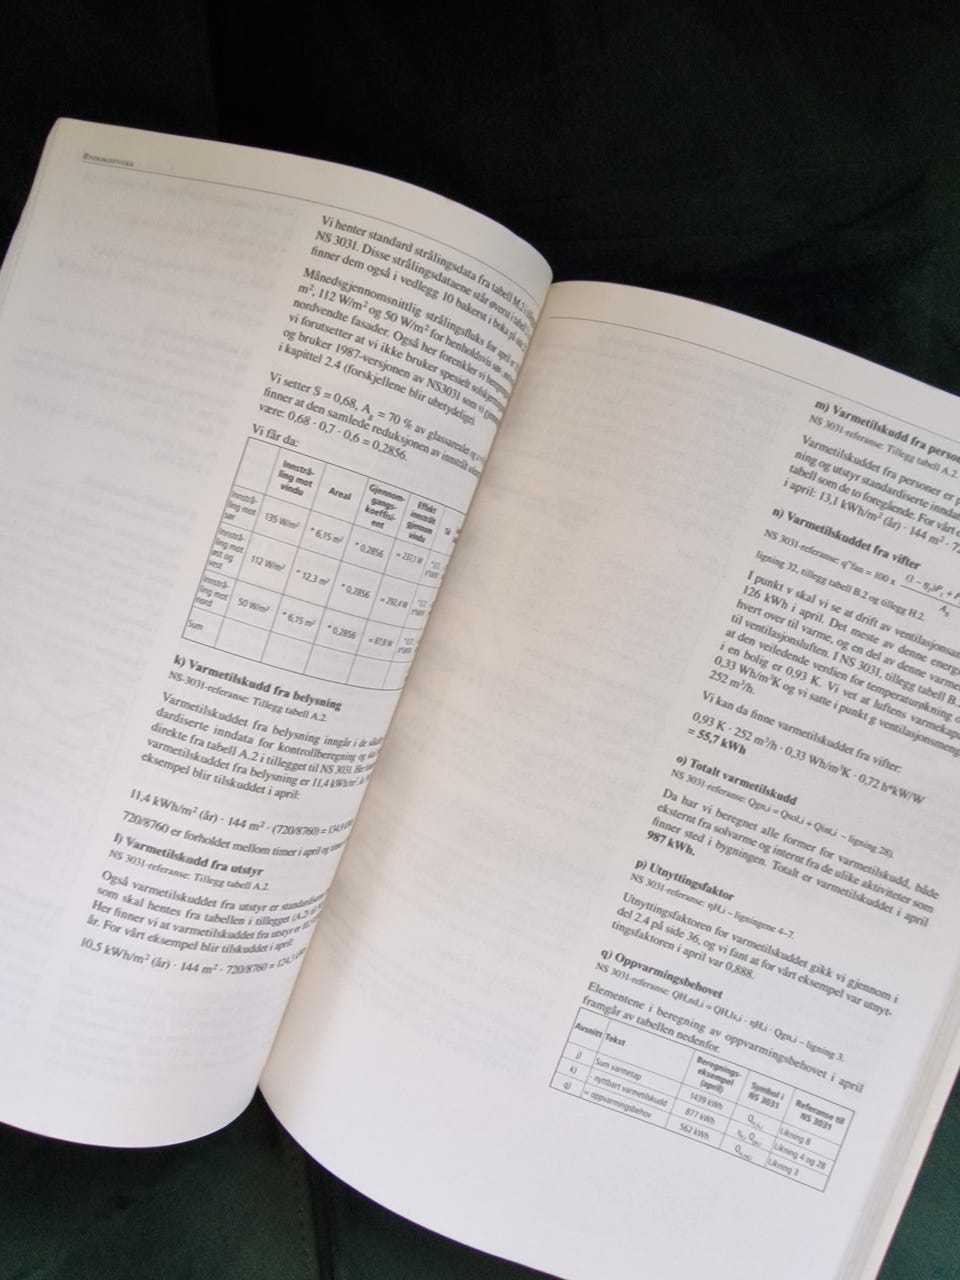 Vi henter standard strålingsdata fra tabell M.2 i
NS 3031. Disse strålingsdataene står øverst i tabell
finner dem også i vedlegg 10 bakerst i boka på side
Månedsgjennomsnittlig strålingsfluks for april er
m², 112 W/m² og 50 W/m² for henholdsvis
nordvendte fasader. Også her forenkler vi
vi forutsetter at vi ikke bruker spesielt
og bruker 1987-versjonen av NS3031 som vi
i kapittel 2.4 (forskjellene blir ubetydelige).
Vi setter S = 0,68, A = 70 % av glassarealet og
finner at den samlede reduksjonen av innstrålt
være: 0,68 · 0,7 · 0,6 = 0,2856.
Vi får da:
Innstrå-
ling mot
vindu
Areal
Gjennom-
gangs-
koeffisi-
ent
Effekt
innstrålt
gjennom
vindu
Innstrå-
ling mot
sør
135 W/m²
* 6,15 m²
* 0,2856
= 237,1 W
Innstrå-
ling mot
øst og
vest
112 W/m²
* 12,3 m²
* 0,2856
= 292,4 W
Innstrå-
ling mot
nord
50 W/m²
* 6,15 m²
* 0,2856
= 87,8 W
Sum
k) Varmetilskudd fra belysning
NS-3031-referanse: Tillegg tabell A.2.
Varmetilskuddet fra belysning inngår i de
dardiserte inndata for kontrollberegning og skal
direkte fra tabell A.2 i tillegget til NS 3031. Her
varmetilskuddet fra belysning er 11,4 kWh/m².
eksempel blir tilskuddet i april:
11,4 kWh/m² (år) · 144 m² · (720/8760) =
720/8760 er forholdet mellom timer i april og
l) Varmetilskudd fra utstyr
NS 3031-referanse: Tillegg tabell A.2.
Også varmetilskuddet fra utstyr er
som skal hentes fra tabellen i tillegget (A.2) til
Her finner vi at varmetilskuddet fra utstyr er
år. For vårt eksempel blir tilskuddet i april:
10,5 kWh/m² (år) · 144 m² · 720/8760 =
m) Varmetilskudd fra
NS 3031-referanse: Tillegg tabell A.2.
Varmetilskuddet fra personer er
ning og utstyr standardiserte
tabell som de to foregående. For vårt
i april: 13,1 kWh/m² (år) · 144 m² ·
n) Varmetilskuddet fra vifter
NS 3031-referanse: q"fan = 100 x
ligning 32, tillegg tabell B.2 og tillegg H.2.
I punkt v skal vi se at drift av
126 kWh i april. Det meste av denne
hvert over til varme, og en del av denne
til ventilasjonsluften. I NS 3031, tillegg tabell
at den veiledende verdien for temperaturøkning
i en bolig er 0,93 K. Vi vet at luftens
0,33 Wh/m³K og vi satte i punkt g
252 m³/h.
Vi kan da finne varmetilskuddet fra vifter:
0,93 K · 252 m³/h · 0,33 Wh/m³K · 0,72 h*kW/W
= 55,7 kWh
o) Totalt varmetilskudd
NS 3031-referanse: Qgn,i = Qsol,i + Qint,i – ligning 28).
Da har vi beregnet alle former for varmetilskudd, både
eksternt fra solvarme og internt fra de ulike aktiviteter som
finner sted i bygningen. Totalt er varmetilskuddet i april
987 kWh.
p) Utnyttingsfaktor
NS 3031-referanse: ηH,i – ligningene 4–7.
Utnyttingsfaktoren for varmetilskuddet gikk vi gjennom i
del 2.4 på side 36, og vi fant at for vårt eksempel var utnyt-
tingsfaktoren i april var 0,888.
q) Oppvarmingsbehovet
NS 3031-referanse: QH,nd,i = QH,ls,i - ηH,i · Qgn,i – ligning 3.
Elementene i beregning av oppvarmingsbehovet i april
framgår av tabellen nedenfor.
Avsnitt
Tekst
Beregnings-
eksempel
(april)
Symbol i
NS 3031
Referanse til
NS 3031
j)
Sum varmetap
1439 kWh
Likning 8
k)
- nyttbart varmetilskudd
877 kWh
Likning 4 og 28
q)
= oppvarmingsbehov
562 kWh
Likning 3